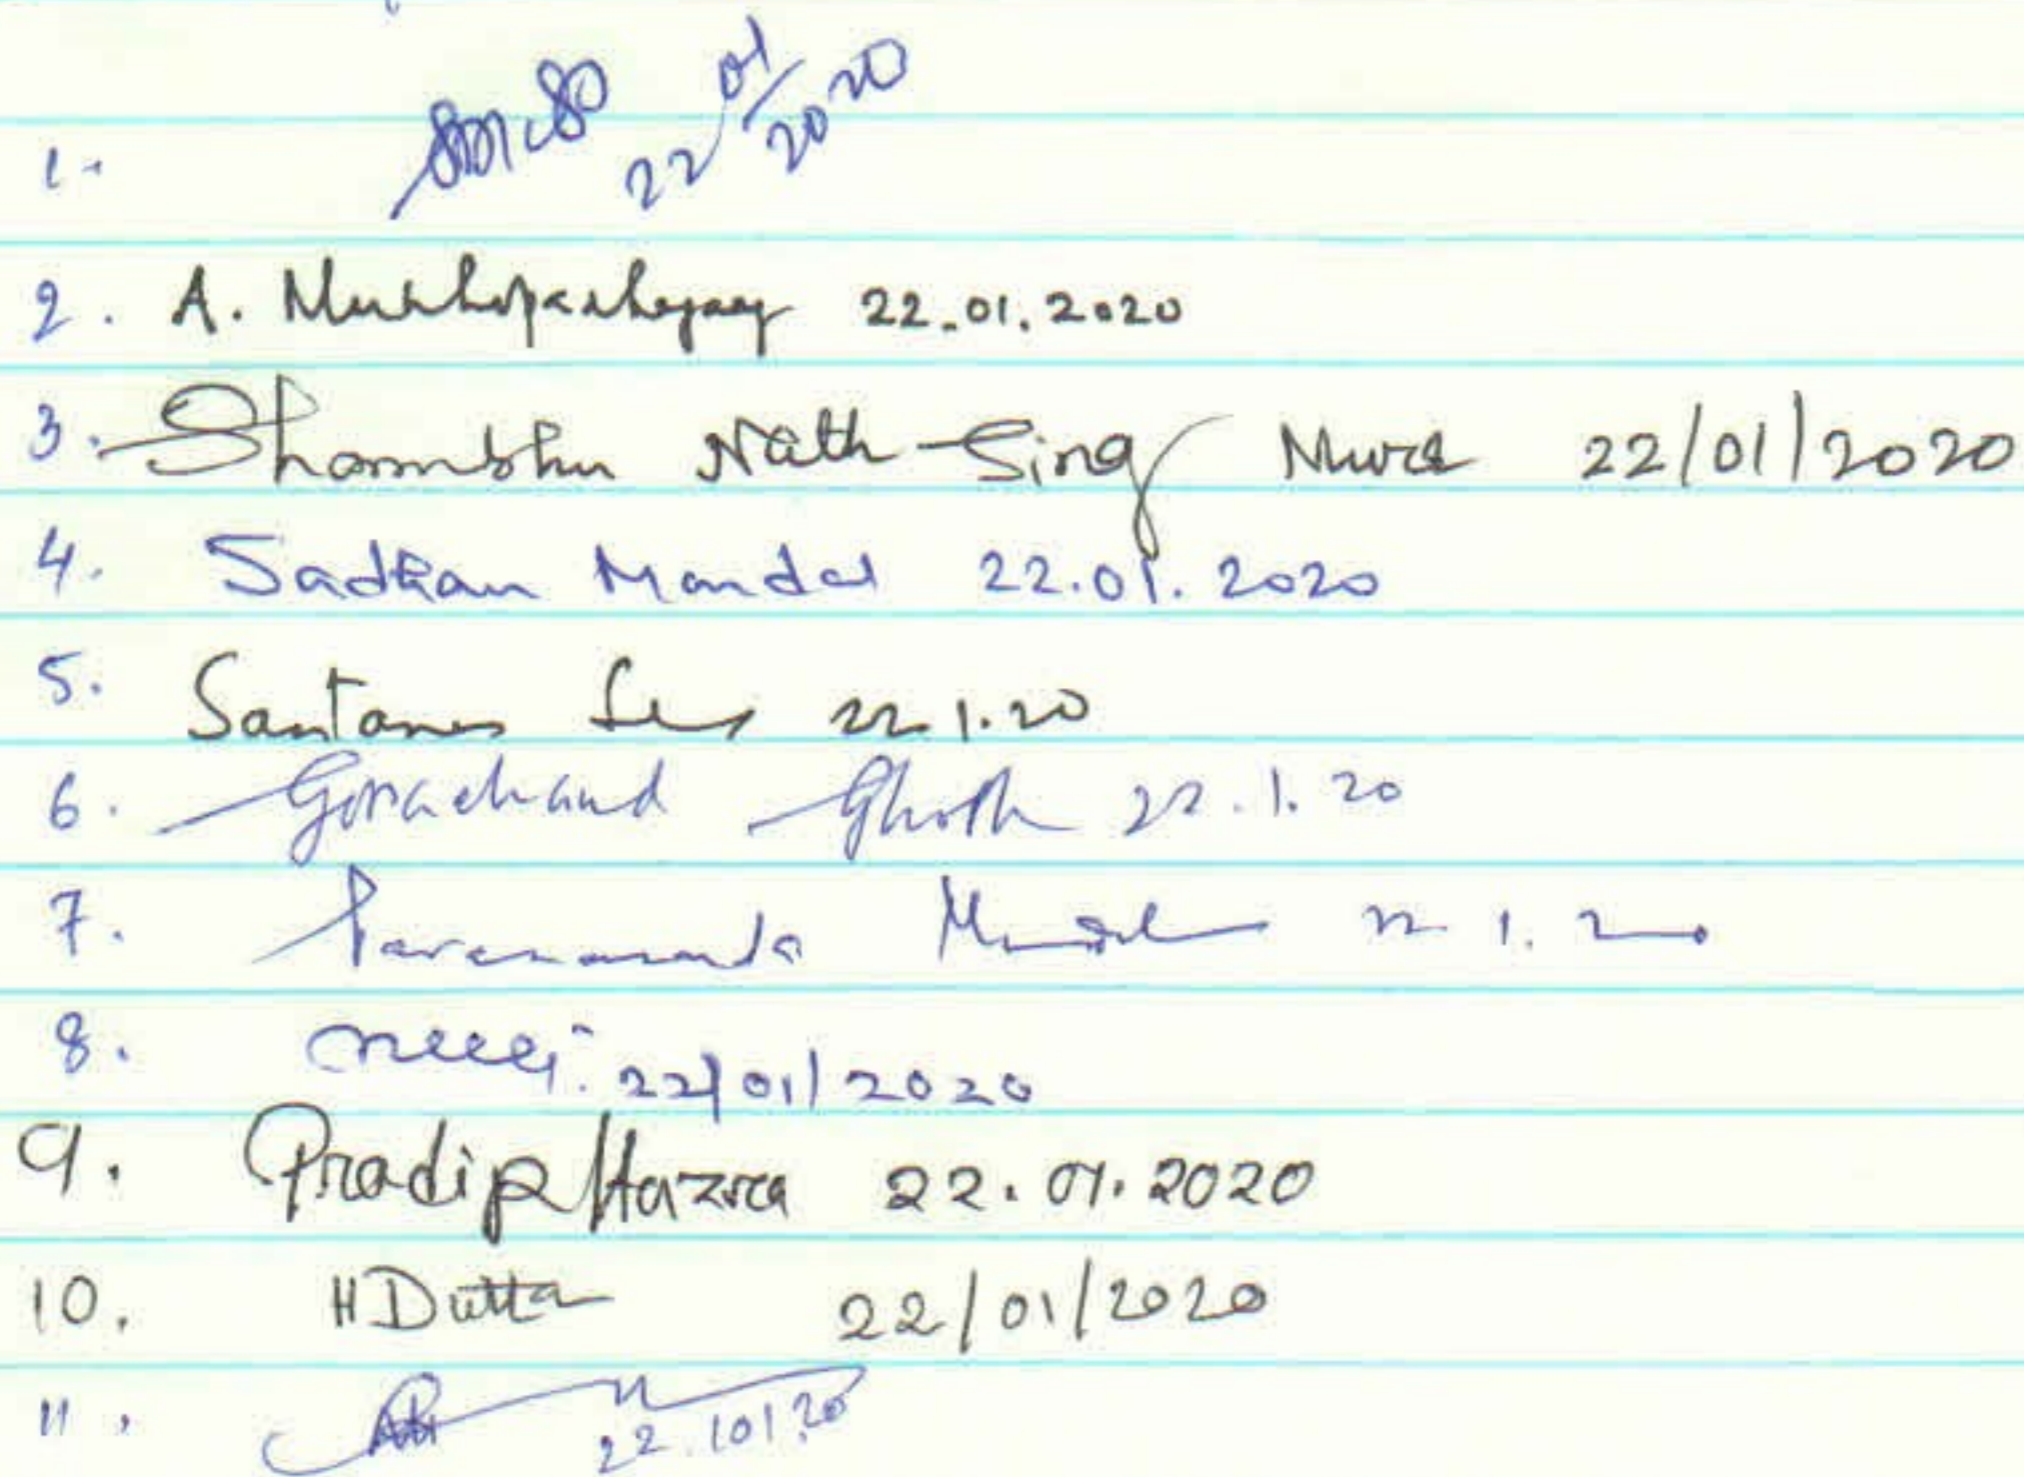 1. 22/01/2020
2. A. Mukhopadhyay 22.01.2020
3. Shambhu Nath Sing Mura 22/01/2020
4. Sadhan Mandal 22.01.2020
5. Santanu 22.1.20
6. Gorachand Ghosh 22.1.20
7. 22.1.20
8. 22/01/2020
9. Pradip Hazra 22.01.2020
10. H Dutta 22/01/2020
11. 22.101.20